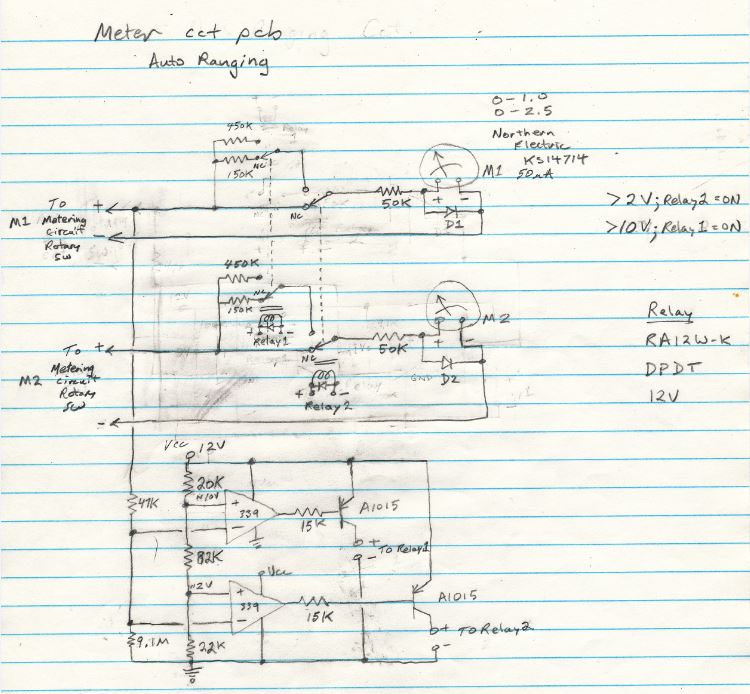 Meter cct pcb
Auto Ranging
0-1.0
0-2.5
Northern
Electric
KS14714
50uA
450K
Relay
1
150K
NC
M1
To
M1 Metering
Circuit
Rotary
SW
+
-
NC
50K
+ -
D1
>2V; Relay2=ON
>10V; Relay1=ON
450K
NC
150K
+ -
Relay1
M2
To
Metering
M2 circuit
Rotary
SW
+
-
NC
50K
+ -
GND
D2
+ -
Relay2
Relay
RA12W-K
DPDT
12V
Vcc 12V
20K
≈10V
+
339
-
47K
15K
A1015
+
To Relay1
-
82K
Vcc
≈2V
+
339
-
15K
A1015
+ To Relay2
-
9.1M
22K